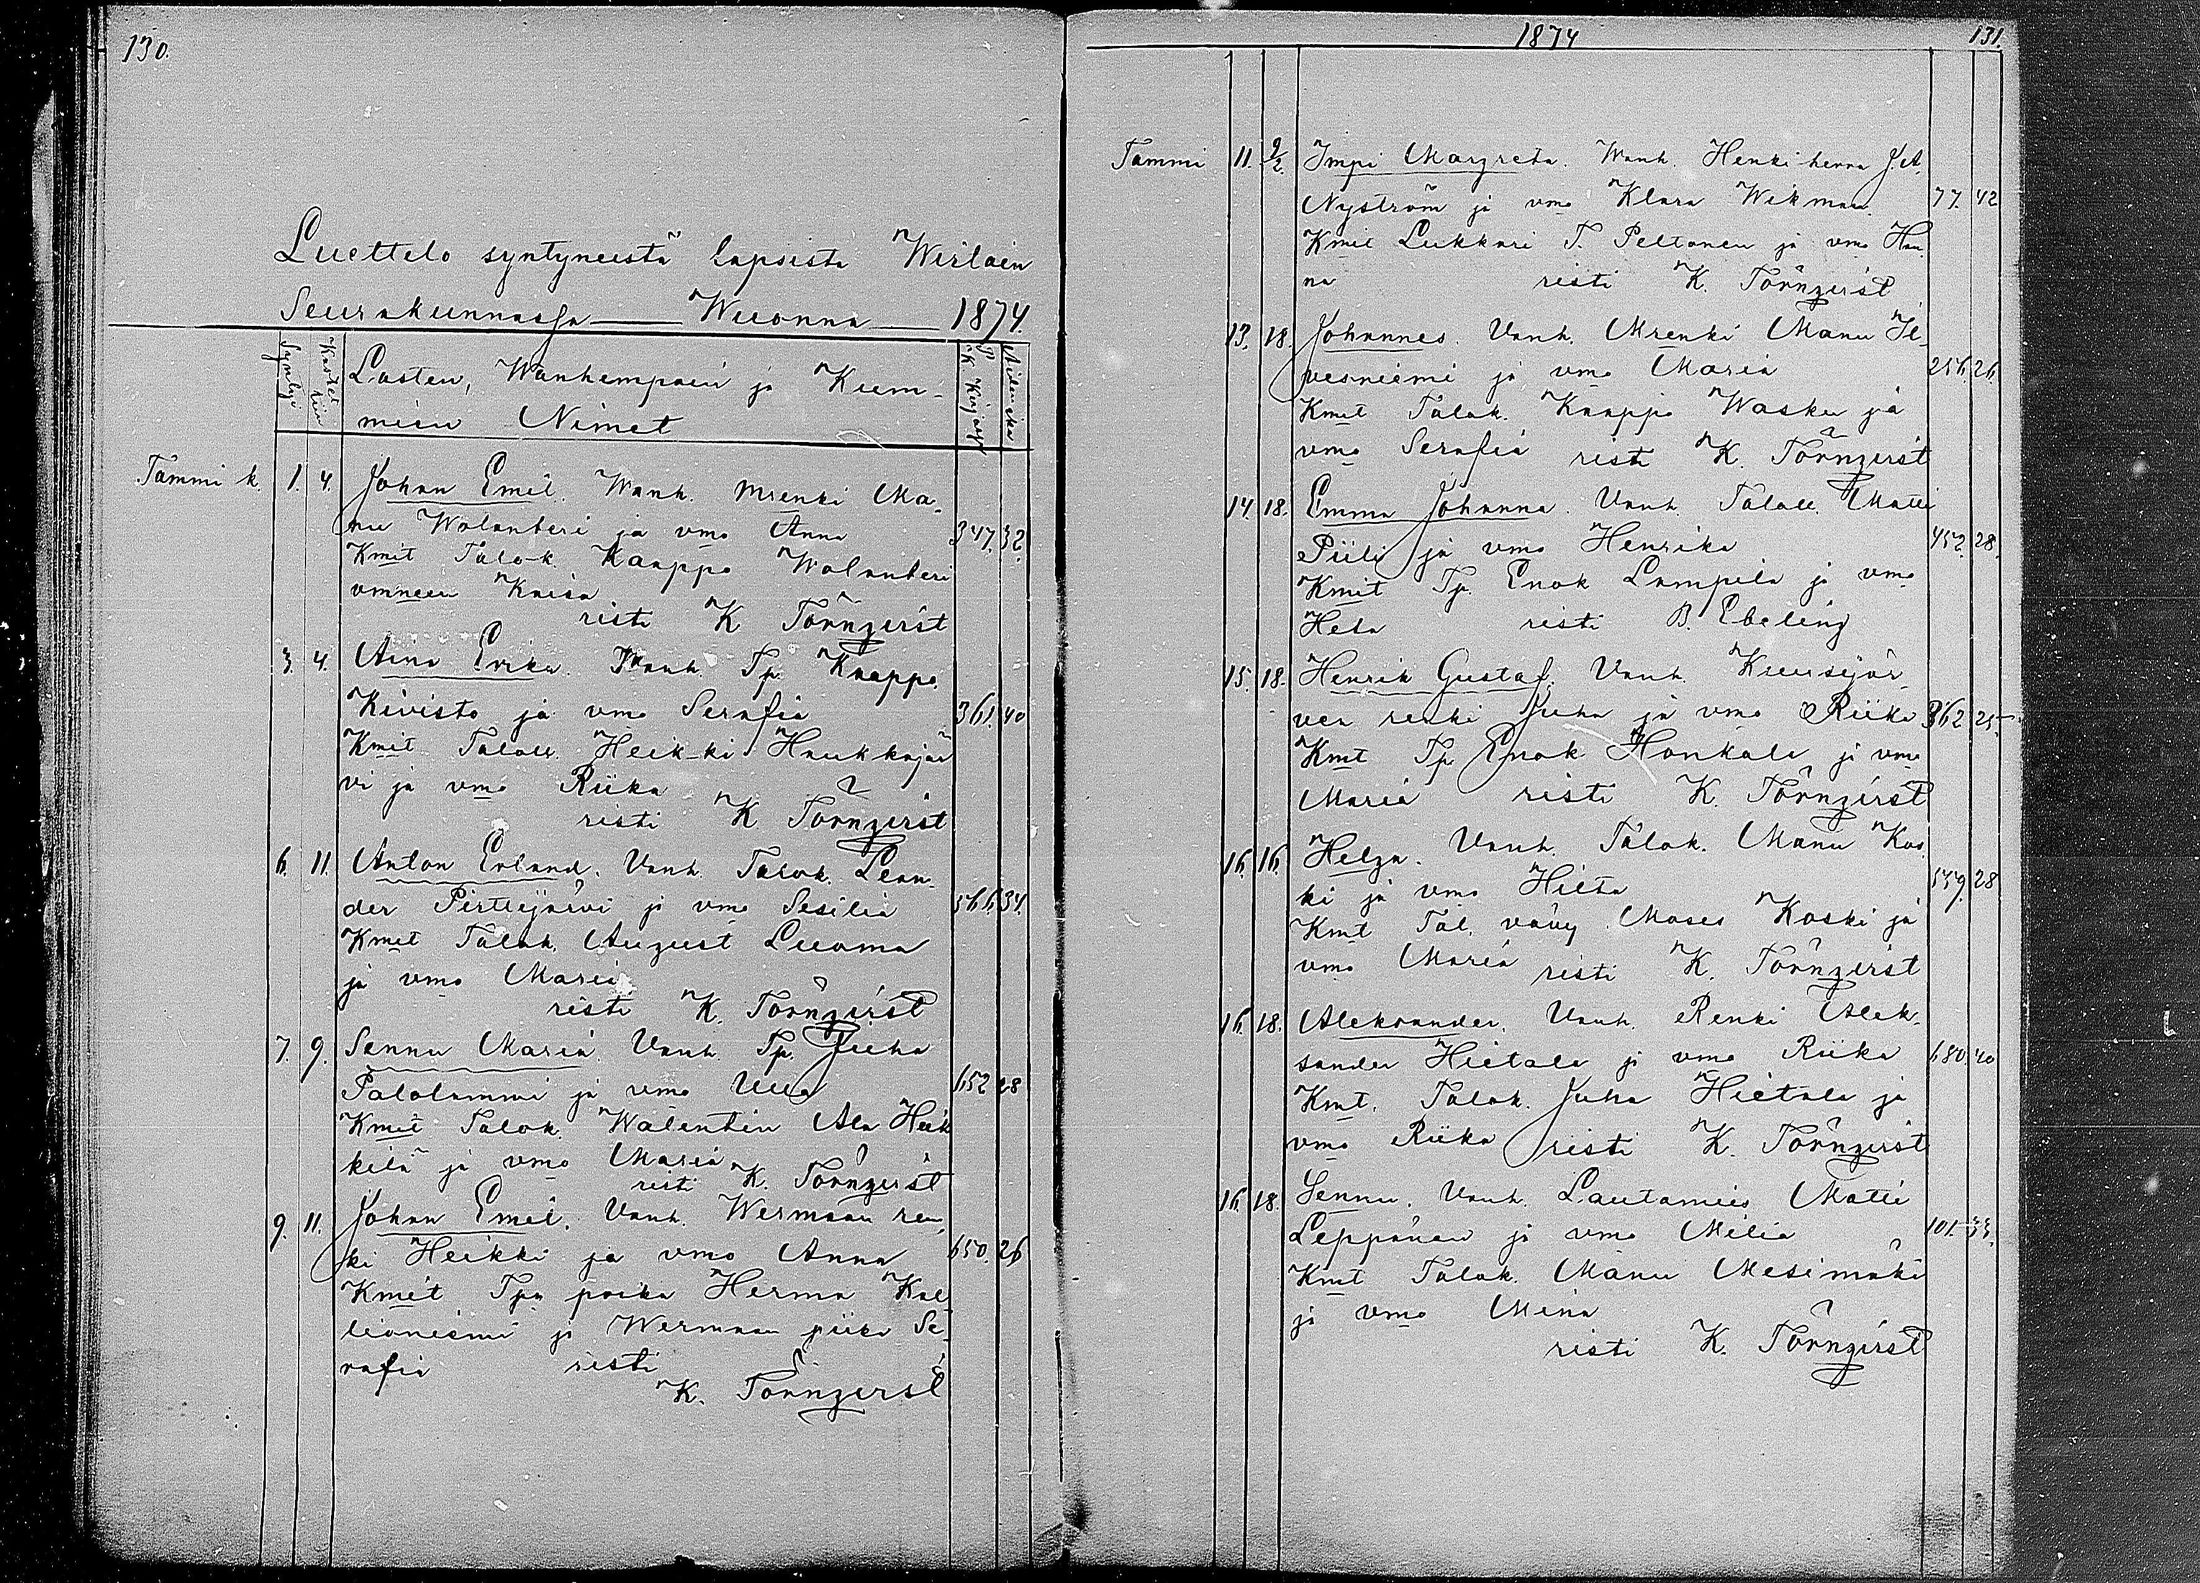 130.
Luettelo syntyneistä lapsista Wirtain
Seurakunnassa Wuonna 1874.
Syntyi
Kastettiin
Lasten, Wanhempain ja Kum-
min Nimet
Äidin ikä
Tammi k. 1. 4. Johan Emil. Wanh. Mrenki Ma-
nu Wolanteri ja vmo Anna 347. 32.
Kmit Talok. Kaappo Wolanteri
vmneen Kaisa
risti K. Törnqvist
3. 4. Aina Erika. Wanh. Tp. Kaappo
Kivistö ja vmo Serafia 361. 40
Kmit Talall. Heikki Haukkajär
vi ja vmo Riika
risti K. Törnqvist
6. 11. Anton Erland. Vanh. Talok. Lean-
der Pirttijärvi ja vmo Sesilia 34.
Kmit Talok. August Luoma
ja vmo Maria
risti K. Törnqvist
7. 9. Sanna Maria. Vanh. Tp. Juha
Palolammi ja vmo Ulla 652 28
Kmit Talok. Walentin Ala Heik
kilä ja vmo Maria
risti K. Törnqvist
9. 11. Johan Emil. Vanh. Wermaan ren
ki Heikki ja vmo Anna 650. 26
Kmit Tpn poika Herma Kal
lioniemi ja Wermaan piika Se
rafia risti
K. Törnqvist
1874 131.
Tammi 11. 9/2. Impi Margreta. Wanh. Henkiherra J.A.
Nyström ja vmo Klara Wikman. 77. 42
Kmit Lukkari T. Peltonen ja vmo Han
na risti K. Törnqvist
13. 18. Johannes. Vanh. Mrenki Manu Il-
vesniemi ja vmo Maria 256. 26.
Kmit Talok. Kaappo Wasku ja
vmo Serafia risti K. Törnqvist
14. 18. Emma Johanna. Vanh. Talall. Matti
Piili ja vmo Henrika 452. 28.
Kmit Tp. Enok Lampila ja vmo
Heta risti B. Ebeling
15. 18. Henrik Gustaf. Vanh. Kuusijär-
ven renki Juha ja vmo Riika 362 25
Kmt Tp. Enok Honkala ja vmo
Maria risti K. Törnqvist
16. 16. Helga. Vanh. Talok. Manu Kos
ki ja vmo Heta 559. 28
Kmt Tal. vävy Moses Koski ja
vmo Maria risti K. Törnqvist
16. 18. Aleksander. Vanh. Renki Alek-
sander Hietala ja vmo Riika 680. 40
Kmt. Talok. Juha Hietala ja
vmo Riika risti K. Törnqvist
16. 18. Sanna. Vanh. Lautamies Matti
Leppänen ja vmo Milia 101. 33.
Kmt Talok. Manu Mesimäki
ja vmo Mina
risti K. Törnqvist